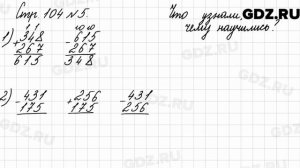 Стр. 104 № 5
Что узнали,
чему научились.
GDZ.RU
1) + 348
267
615
- 615
267
348
2) - 431
175
+ 256
175
- 431
256
GDZ.RU